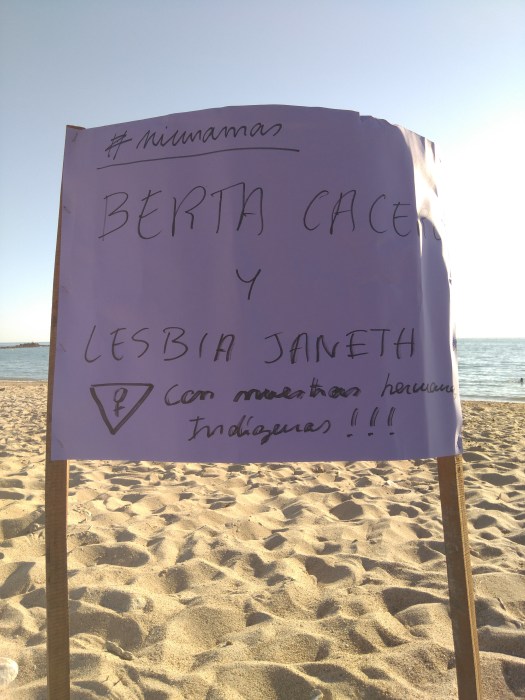 #niunamas
BERTA CACER
Y
LESBIA JANETH
Con nuestras hermana
Indígenas !!!